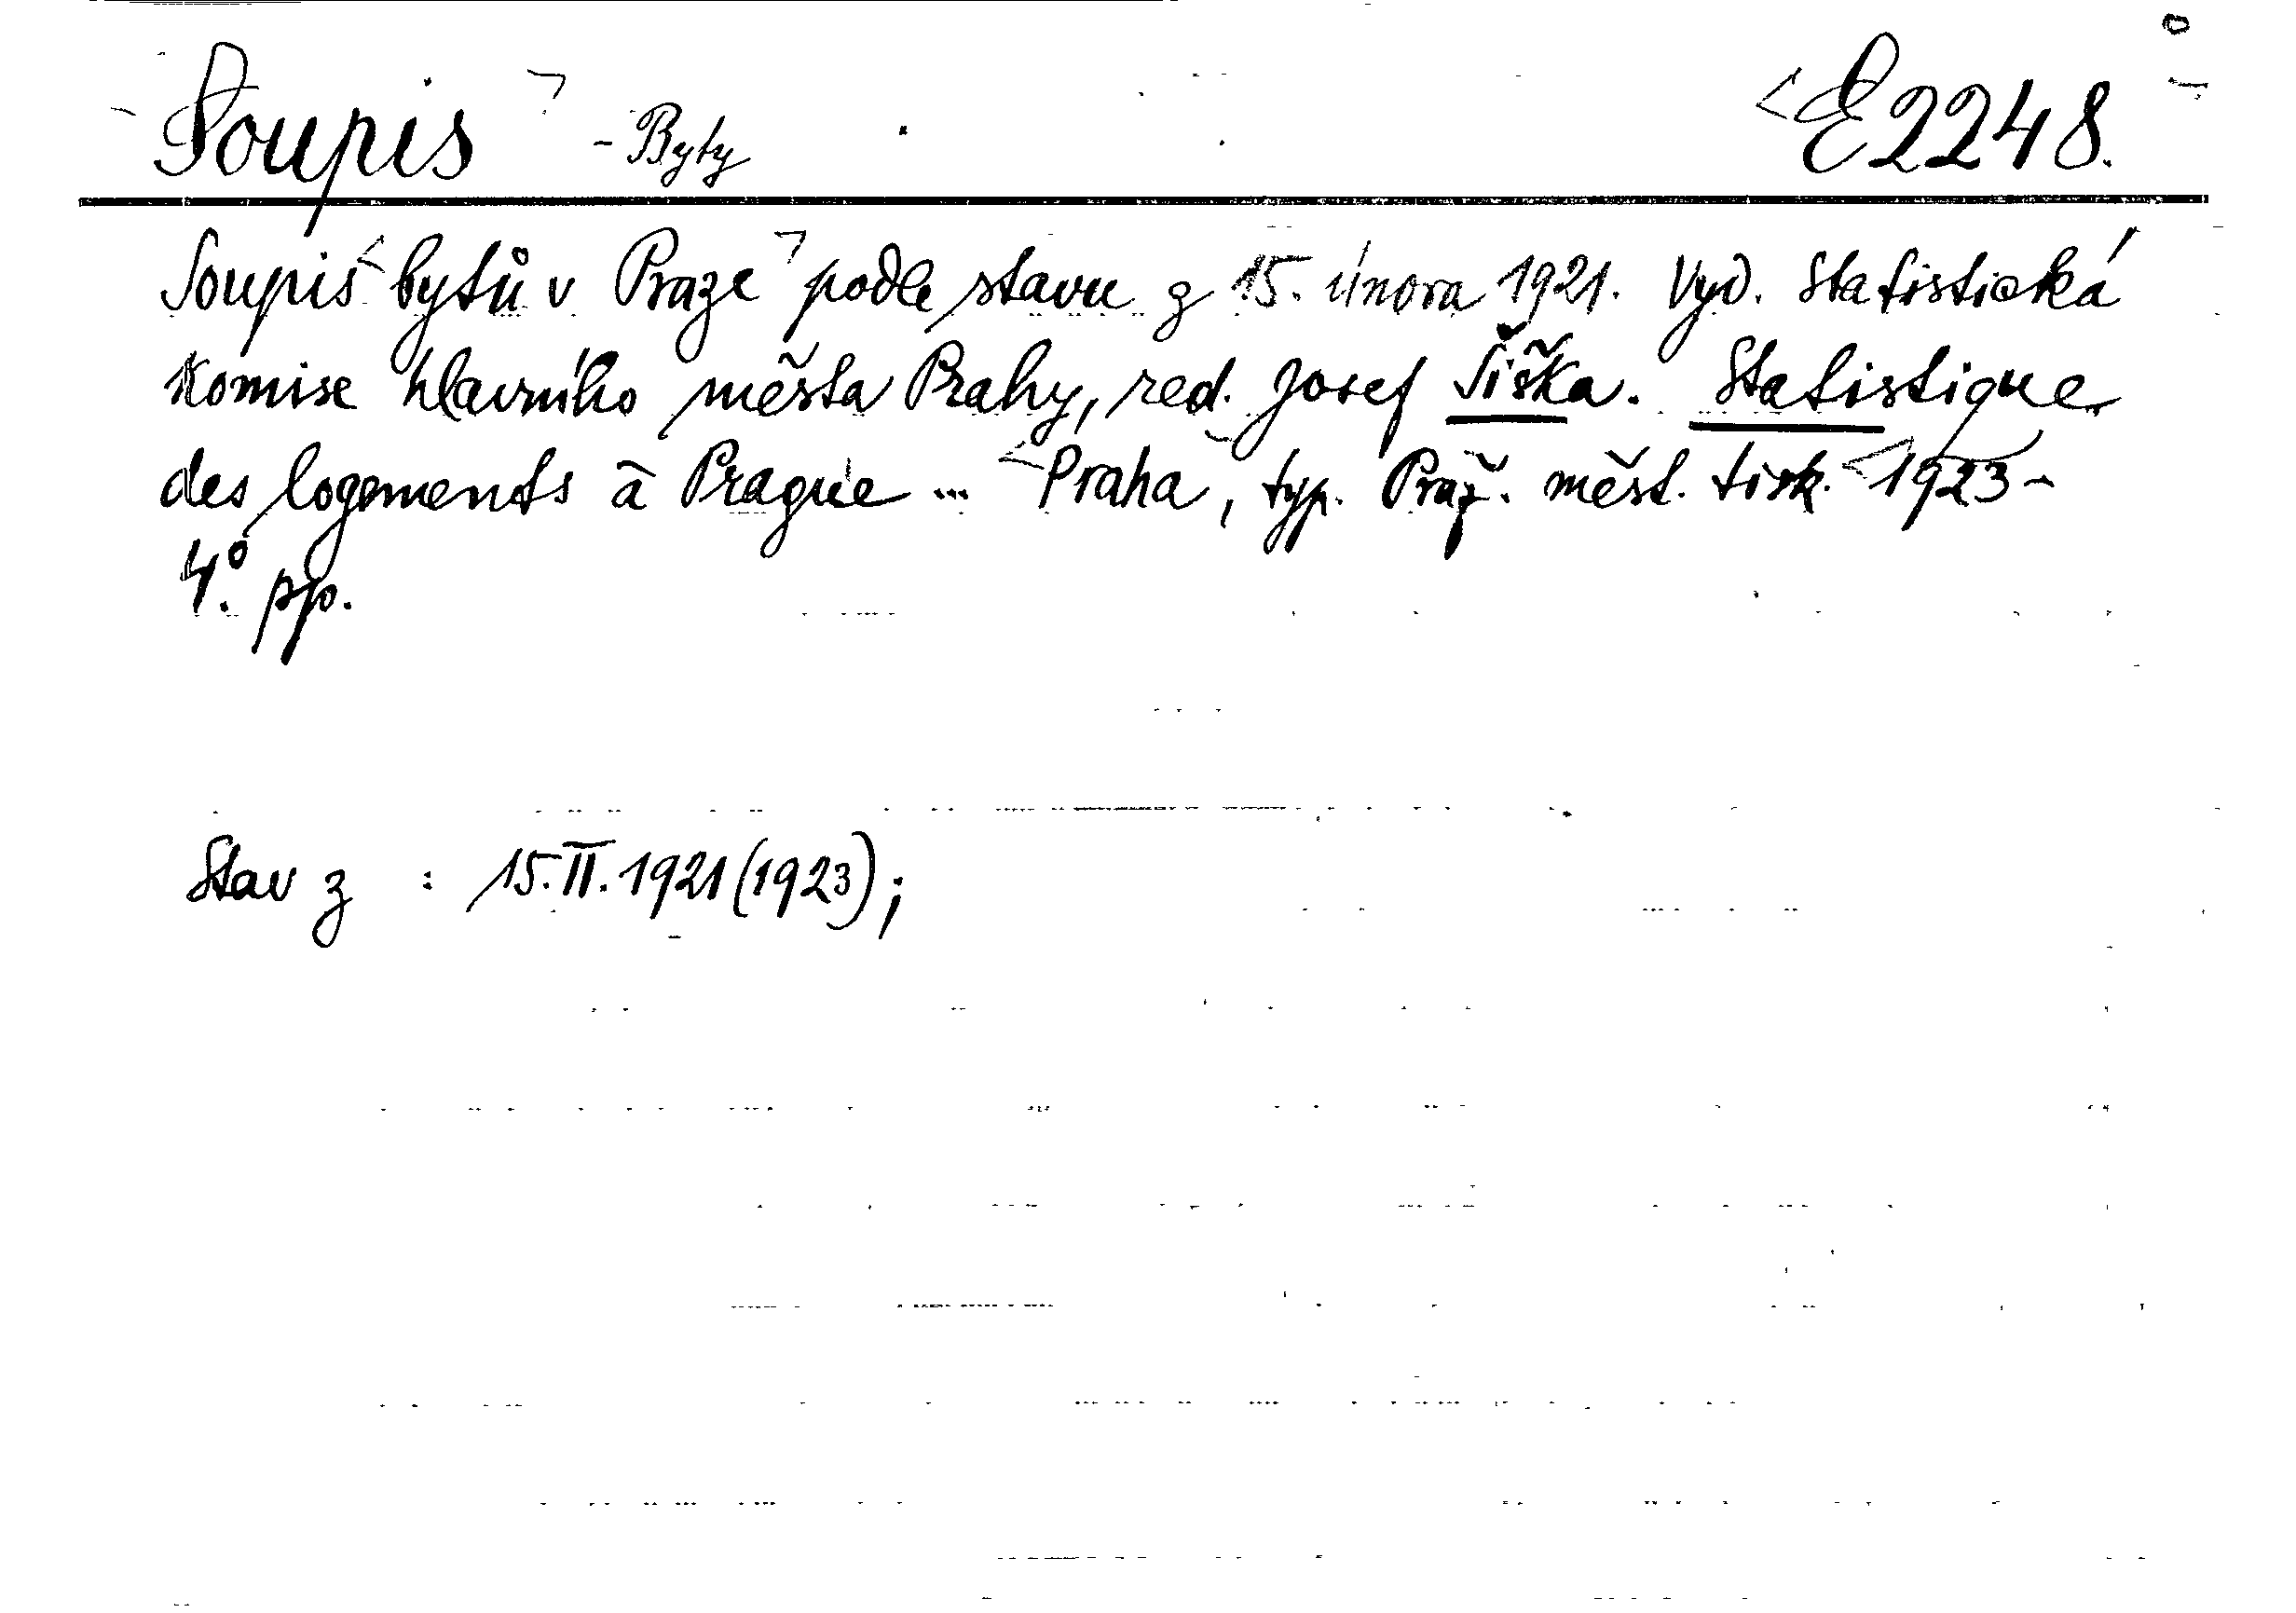 Soupis - Byty E 2248.
Soupis bytů v Praze podle stavu z 15. února 1921. Vyd. Statistická
komise hlavního města Prahy, red. Josef Šiška. Statistique
des logements à Prague ... Praha, typ. Praž. měst. tisk. 1923-
4°. pp.
Stav z : 15.II.1921(1923);